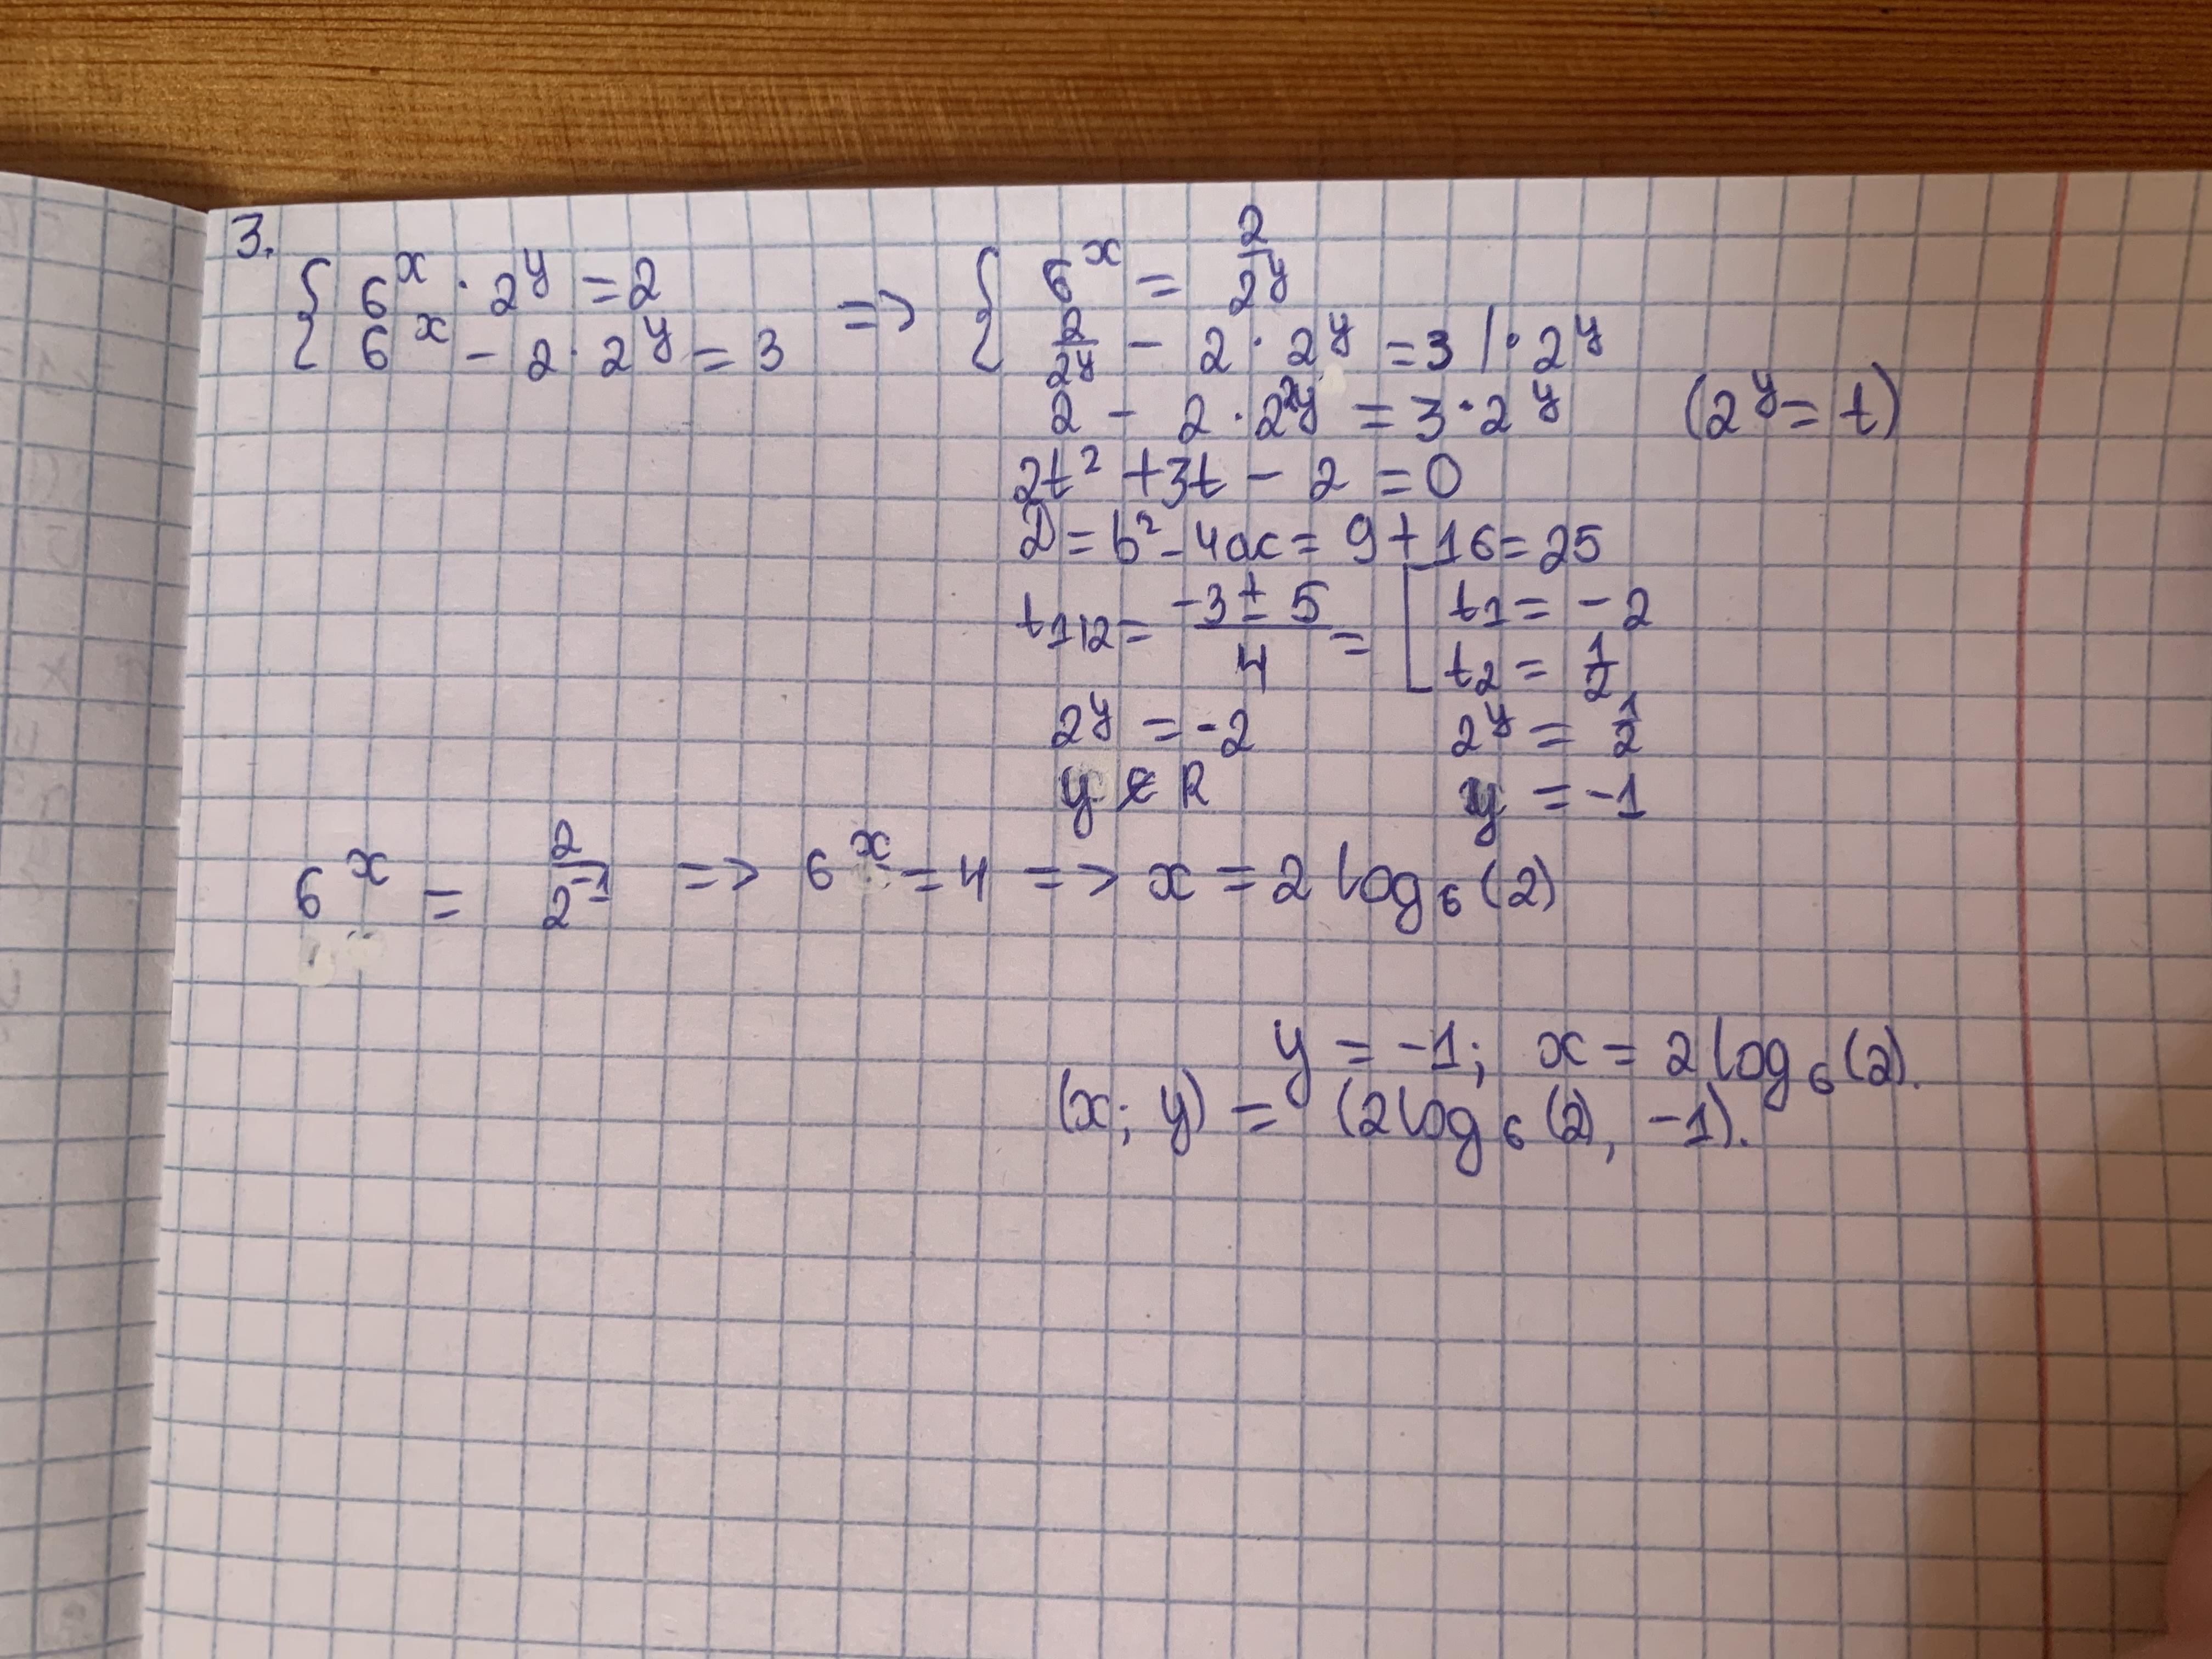 3.
{ 6^x · 2^y = 2 => { 6^x = 2/2^y
6^x - 2 · 2^y = 3 2/2^y - 2 · 2^y = 3 | · 2^y
2 - 2 · 2^2y = 3 · 2^y (2^y = t)
2t² + 3t - 2 = 0
D = b² - 4ac = 9 + 16 = 25
t1,2 = (-3 ± 5)/4 = [ t1 = -2
t2 = 1/2
2^y = -2 2^y = 1/2
y ∉ R y = -1
6^x = 2/2^-1 => 6^x = 4 => x = 2 log₆(2)
y = -1; x = 2 log₆(2).
(x; y) = (2 log₆(2), -1).